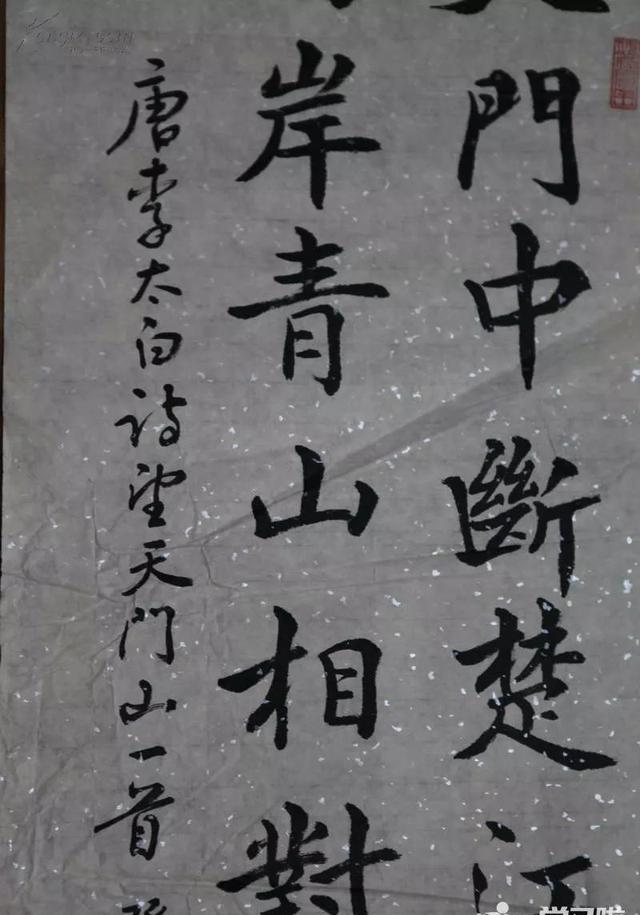 門中斷楚江
岸青山相對
唐李太白詩望天門山一首